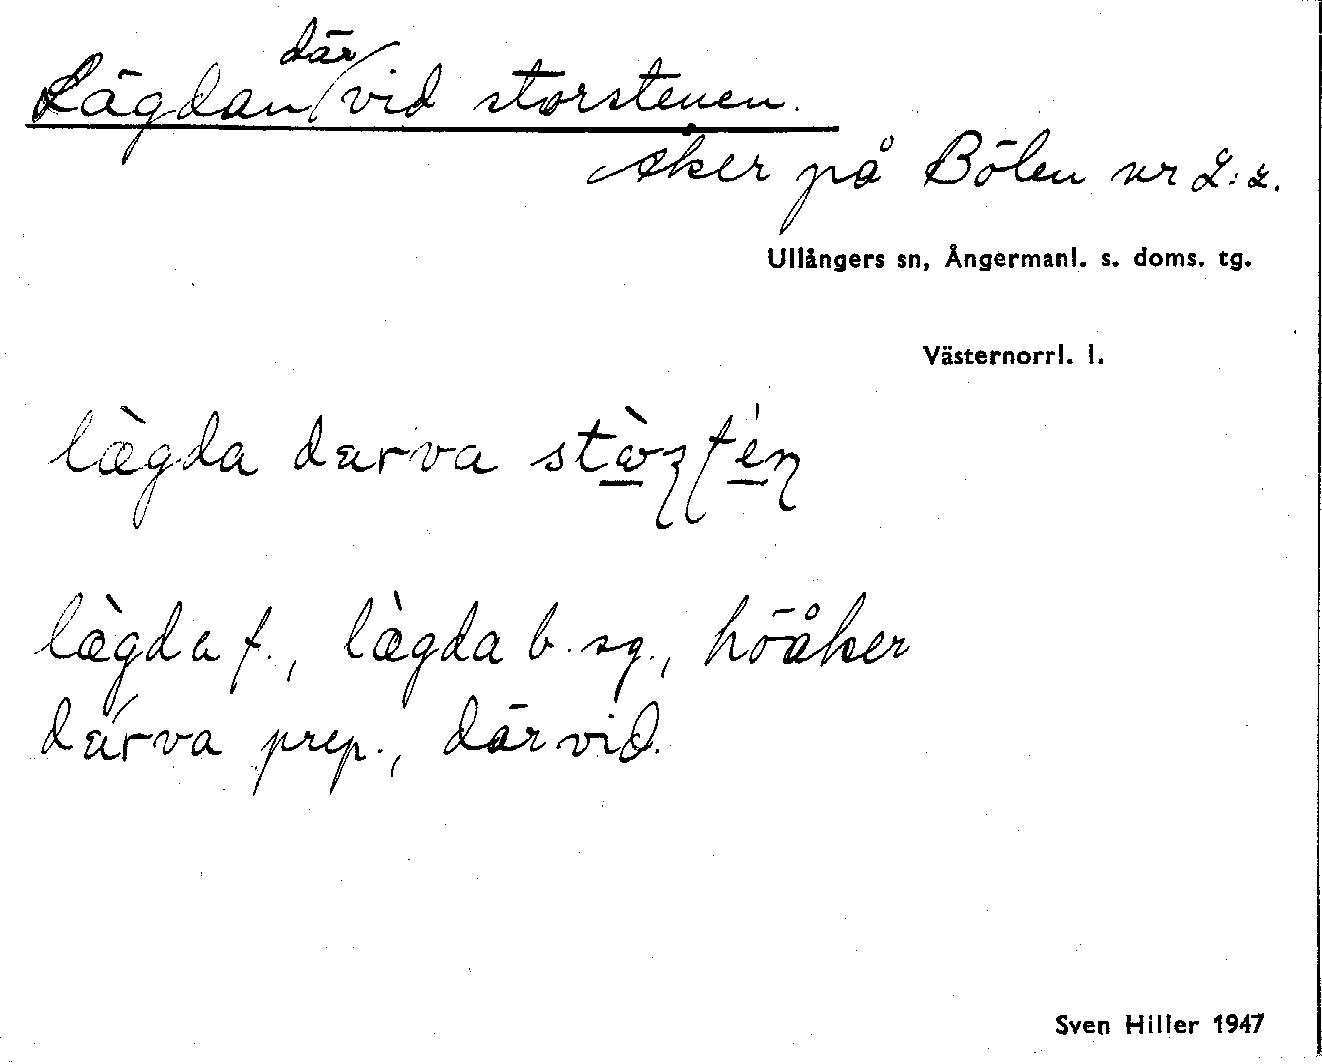 Lägdan där vid storstenen.
Åker på Bölen nr 2:2.
Ullångers sn, Ångermanl. s. doms. tg.
Västernorrl. l.
lœ̀gda dɛrva
lœ̀gda f., lœ̀gda b. sg., höåker
dɛrva prep., därvid.
Sven Hiller 1947